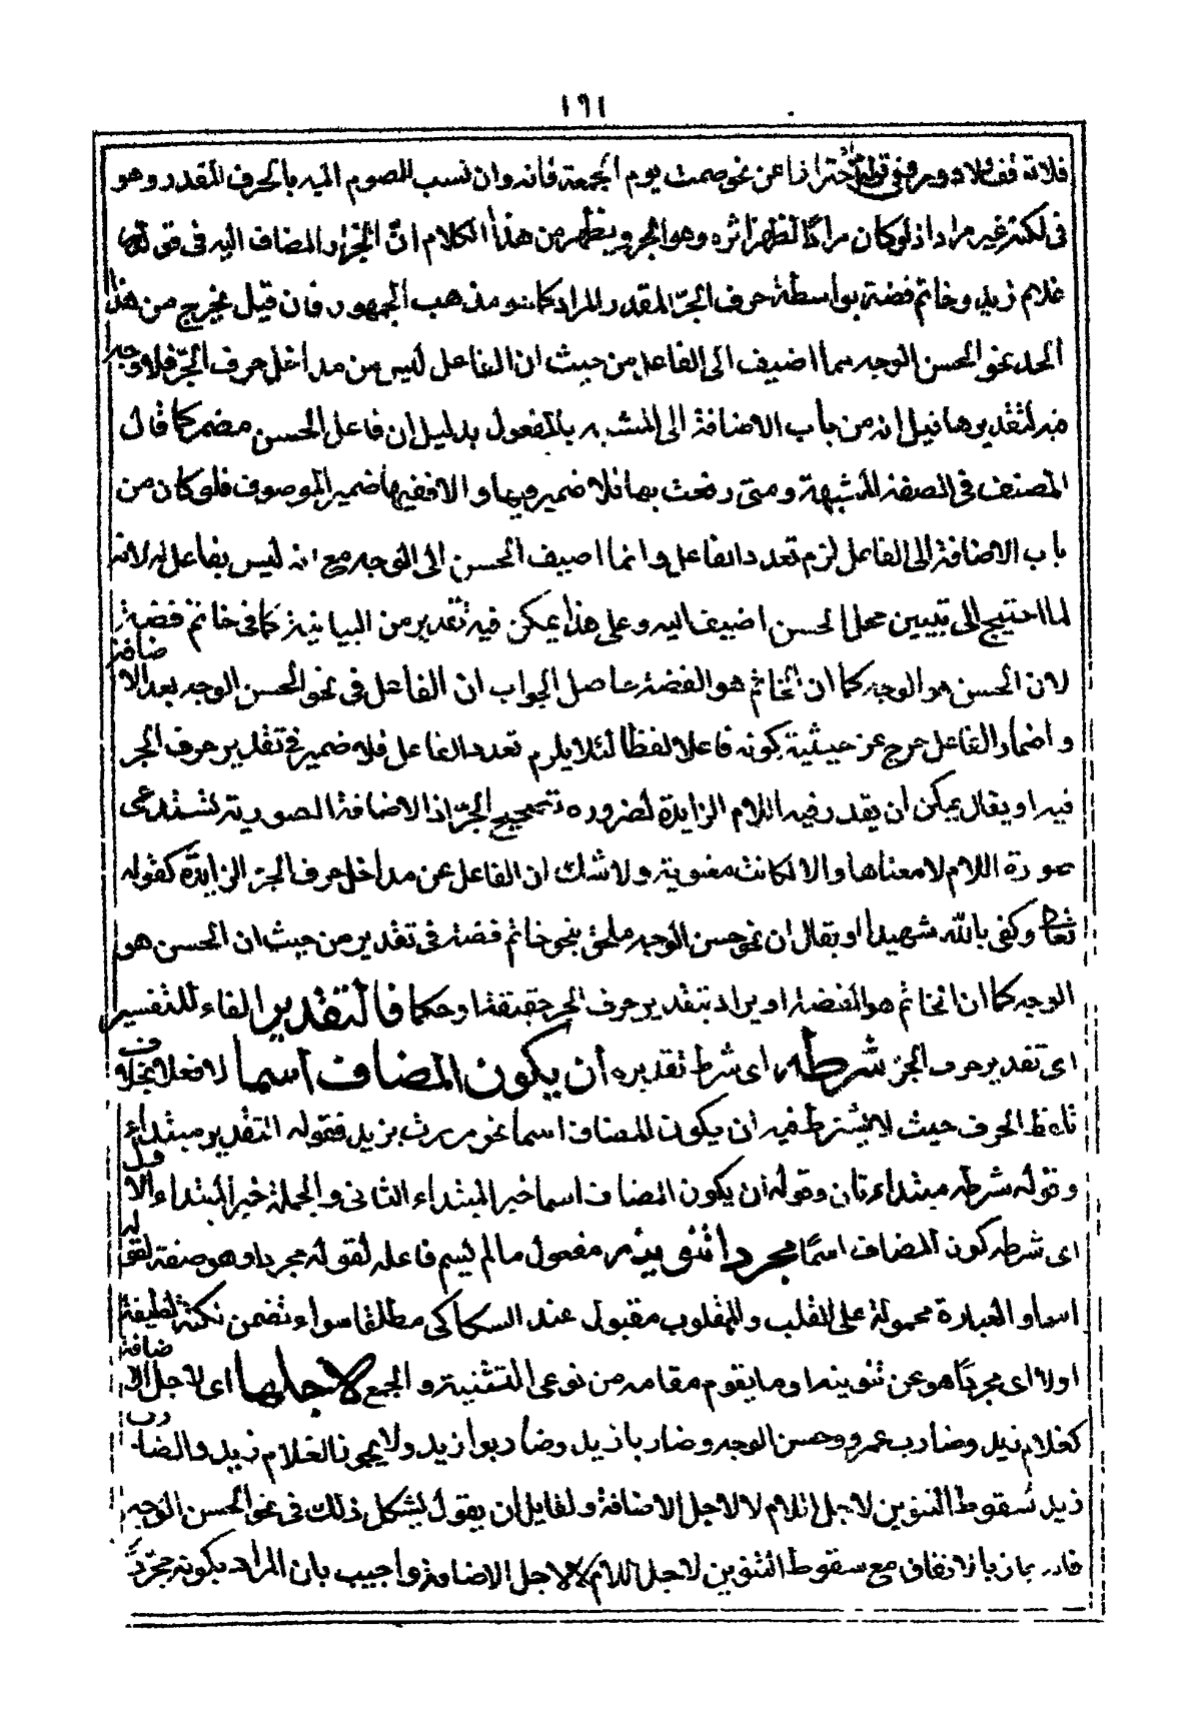 ١٦١
احترازا عن نحو صمت يوم الجمعة فانه وان نسب الصوم اليه بالحرف المقدر وهو
فى لكنه غير مراد اذ لو كان مرادًا لظهر اثره وهو الجر ويظهر من هذا الكلام انّ انجرار المضاف اليه فى قولك
غلام زيد وخاتم فضة بواسطة حرف الجرّ المقدر المراد كما هو مذهب الجمهور فان قيل يخرج من هذا
الحد نحو الحسن الوجه مما اضيف الى الفاعل من حيث ان الفاعل ليس من مداخل حرف الجرّ فلا وجه
لتقديره ها قيل انه من باب الاضافة الى المشبه بالمفعول بدليل ان فاعل الحسن مضمر كما قال
المصنف فى الصفة المشبهة ومتى رفعت بها فلا ضمير فيها والا ففيها ضمير الموصوف فلو كان من
باب الاضافة الى الفاعل لزم تعدد الفاعل وانما اضيف الحسن الى الوجه مع انه ليس بفاعل له لانه
لما احتيج الى تبيين محل الحسن اضيف اليه وعلى هذا يمكن فيه تقدير من البيانية كما فى خاتم فضة
لان الحسن هو الوجه كما ان الخاتم هو الفضة حاصل الجواب ان الفاعل فى نحو الحسن الوجه بعد الاضافة
واضمار الفاعل خرج عن حيثية كونه فاعلا لفظا لئلا يلزم تعدد الفاعل فلا ضمير فى تقدير حرف الجر
فيه او يقال يمكن ان يقدر فيه اللام الزايدة لضرورة تصحيح الجرّ اذ الاضافة الصورية تستدعى
صورة اللام لا معناها والا لكانت معنوية ولا شك ان الفاعل من مداخل حرف الجر الزايدة كقوله
تعالى وكفى بالله شهيدا او يقال ان نحو حسن الوجه ملحق بنحو خاتم فضة فى تقدير من حيث ان الحسن هو
الوجه كما ان الخاتم هو الفضة او يراد بتقدير حرف الجر حقيقة او حكما فالتقدير الفاء للتفسير
اى تقدير حرف الجر شرطه اى شرط تقديره ان يكون المضاف اسما لا فعلا بخلاف
تلفظ الحرف حيث لا يشترط فيه ان يكون المضاف اسما نحو مررت بزيد فقوله التقدير مبتداء
وقوله شرطه مبتداء ثان وقوله ان يكون المضاف اسما خبر المبتداء الثانى والجملة خبر المبتداء الا
اى شرطه كون المضاف اسمًا مجردا تنوينه مفعول مالم يسم فاعله لقوله مجردا وهو صفة لقوله
اسما والعبارة محمولة على القلب والمقلوب مقبول عند السكاكى مطلقا سواء تضمن نكتة لطيفة
اولا اى مجردًا هو عن تنوينه او ما يقوم مقامه من نونى التثنية والجمع لاجلها اى لاجل الاضافة
كغلام زيد وضارب عمرو وحسن الوجه وضاربا زيد وضاربوا زيد ولا يجوز الغلام زيد والضارب
زيد لسقوط التنوين لاجل اللام لا لاجل الاضافة ولقايل ان يقول يشكل ذلك فى نحو الحسن الوجه
بالاتفاق مع سقوط التنوين لاجل اللام لا لاجل الاضافة واجيب بان المراد بكونه مجردًّا